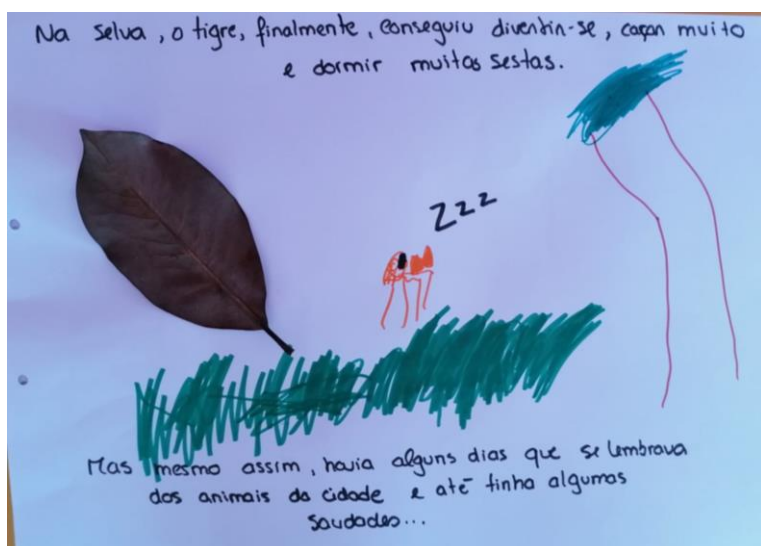 Na selva, o tigre, finalmente, conseguiu divertir-se, caçar muito
e dormir muitas sestas.
Zzz
Mas mesmo assim, havia alguns dias que se lembrava
dos animais da cidade e até tinha algumas
saudades...